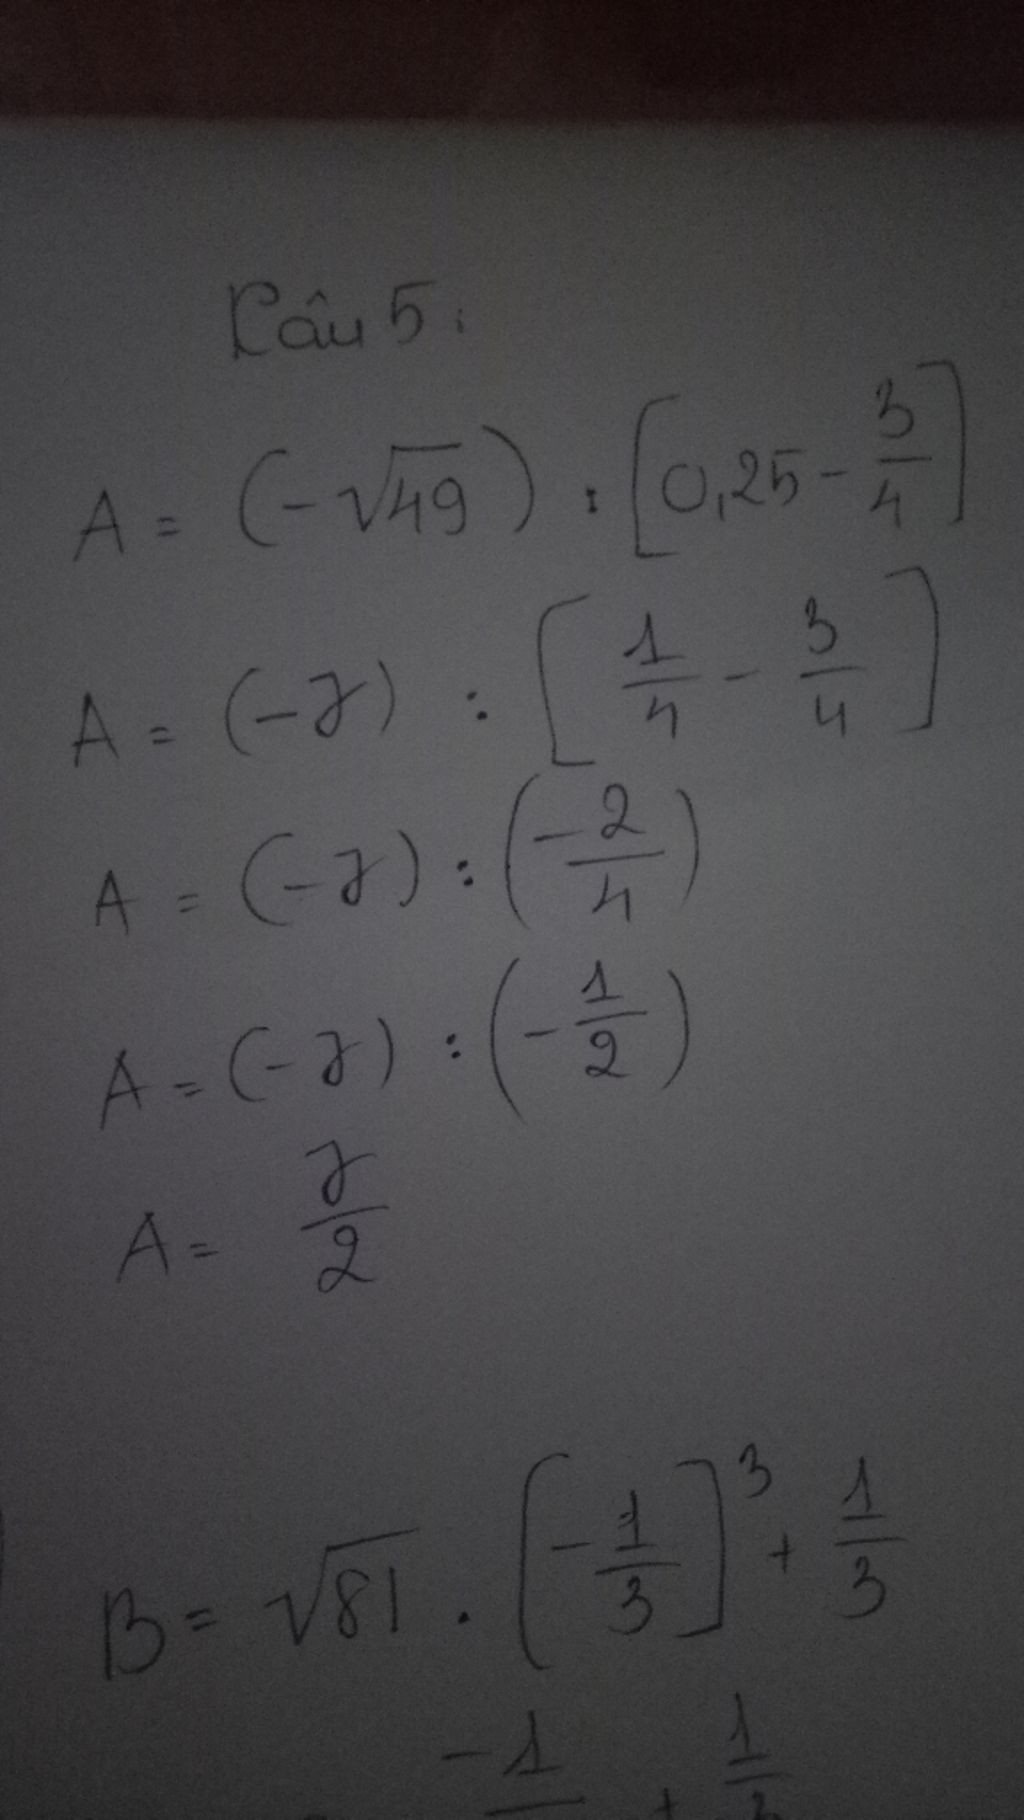 Câu 5:
A = (-√49) : [0,25 - 3/4]
A = (-7) : [1/4 - 3/4]
A = (-7) : (-2/4)
A = (-7) : (-1/2)
A = 7/2
B = √81 . [-1/3]³ + 1/3
-1 + 1